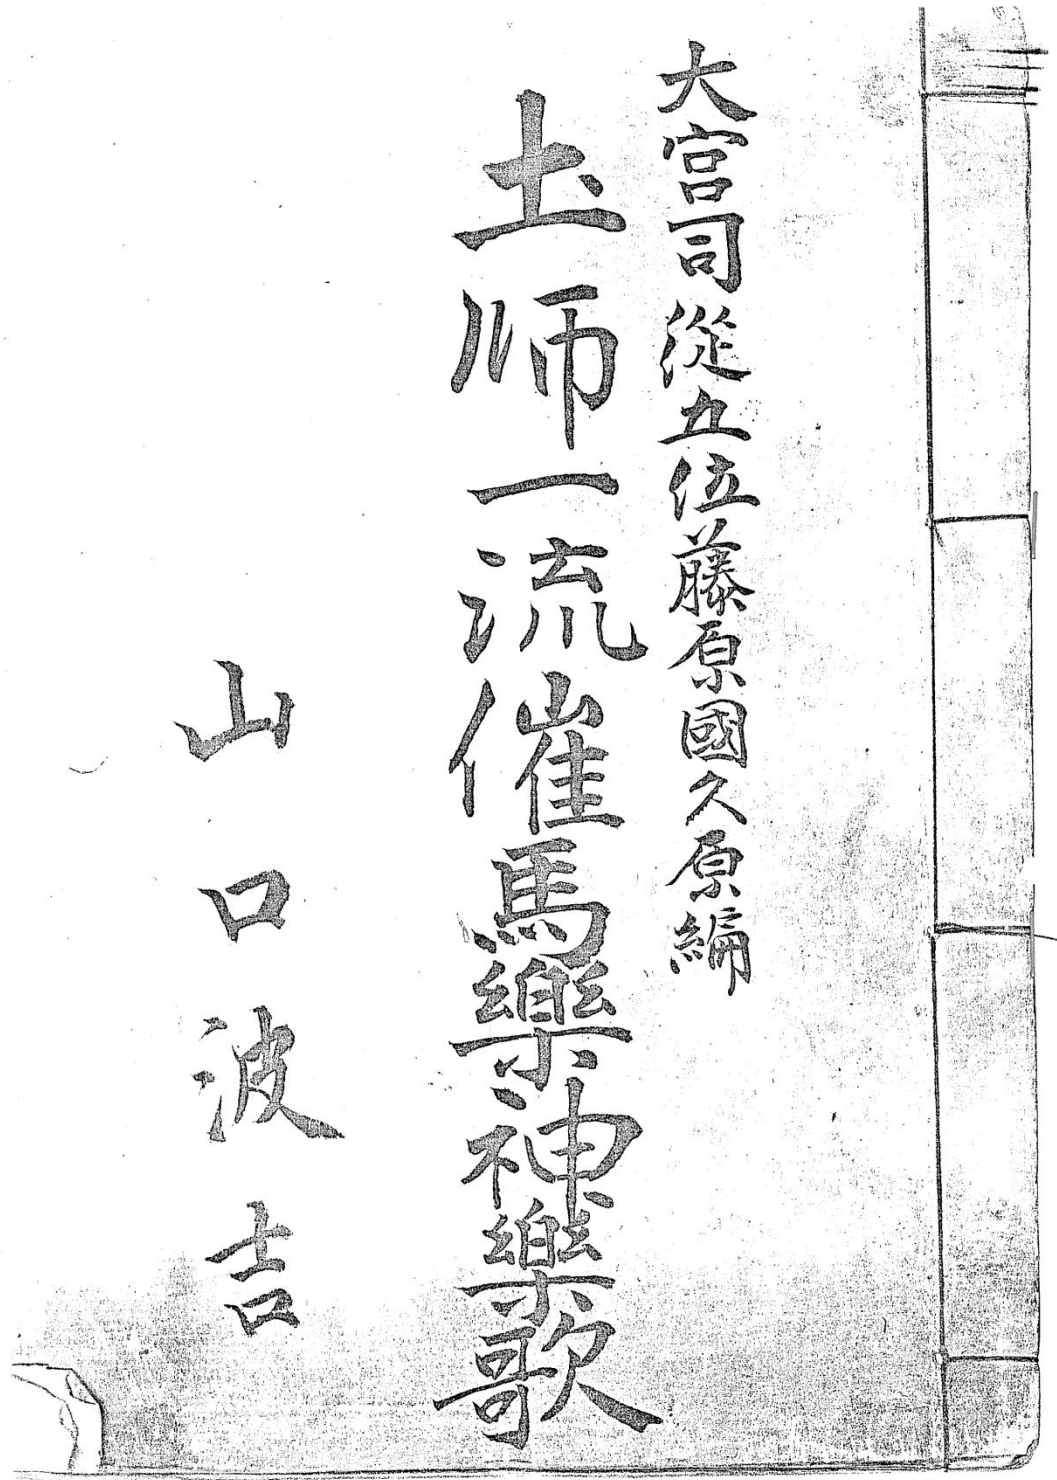 大宮司從五位藤原國久原編
土師一流催馬樂神樂歌
山口波吉